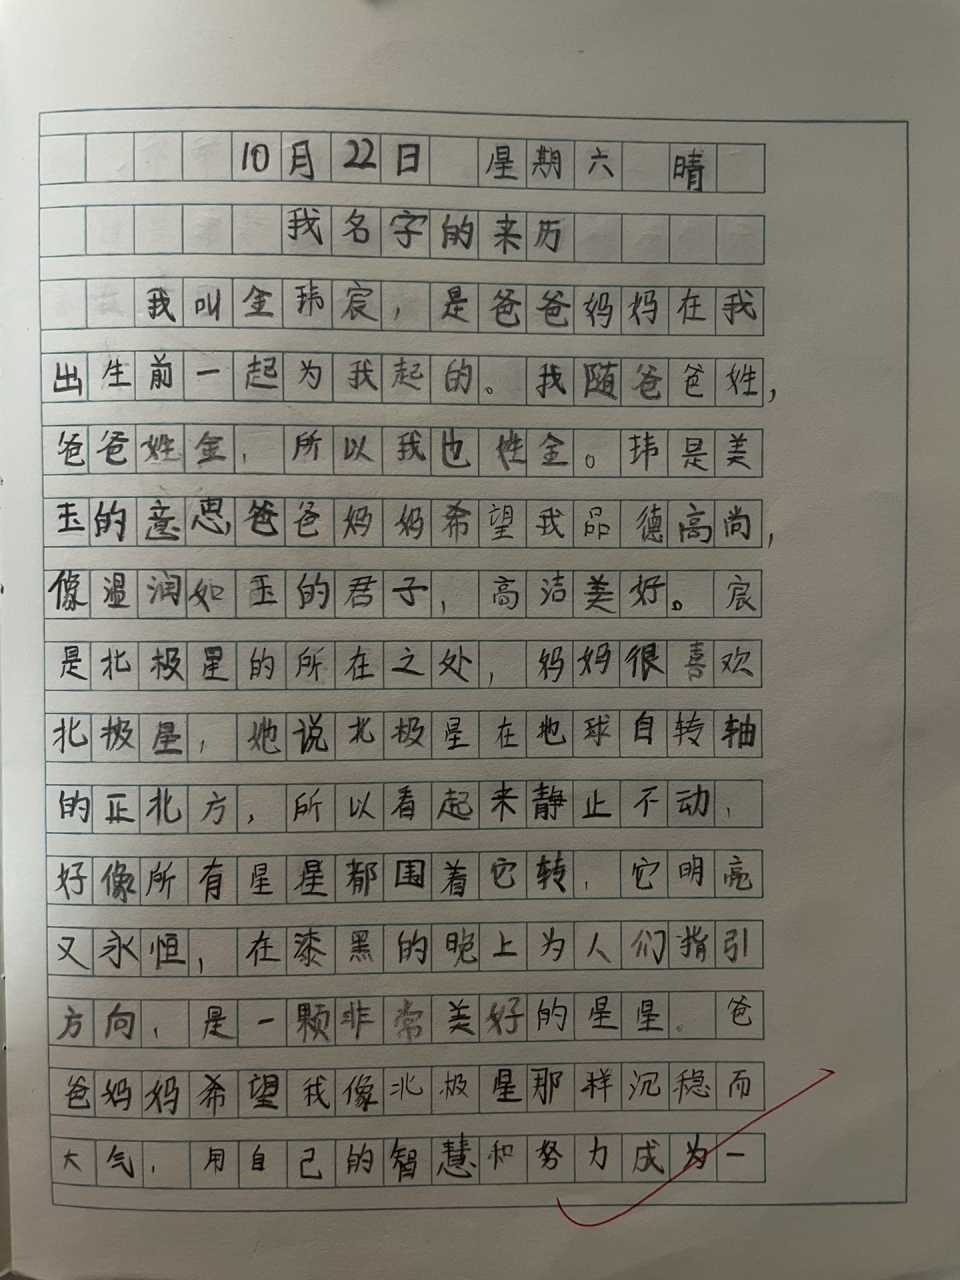 10月22日 星期六 晴
我名字的来历
我叫金玮宸，是爸爸妈妈在我
出生前一起为我起的。我随爸爸姓，
爸爸姓金，所以我也姓金。玮是美
玉的意思，爸爸妈妈希望我品德高尚，
像温润如玉的君子，高洁美好。宸
是北极星的所在之处，妈妈很喜欢
北极星，她说北极星在地球自转轴
的正北方，所以看起来静止不动，
好像所有星星都围着它转，它明亮
又永恒，在漆黑的晚上为人们指引
方向，是一颗非常美好的星星。爸
爸妈妈希望我像北极星那样沉稳而
大气，用自己的智慧和努力成为一